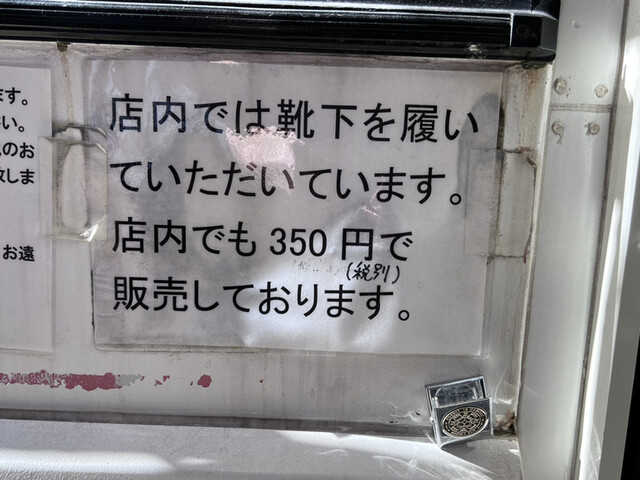 ます。
店内では靴下を履い
ていただいています。
店内でも350円で
(税別)
販売しております。
い。
のお
しま
お遠